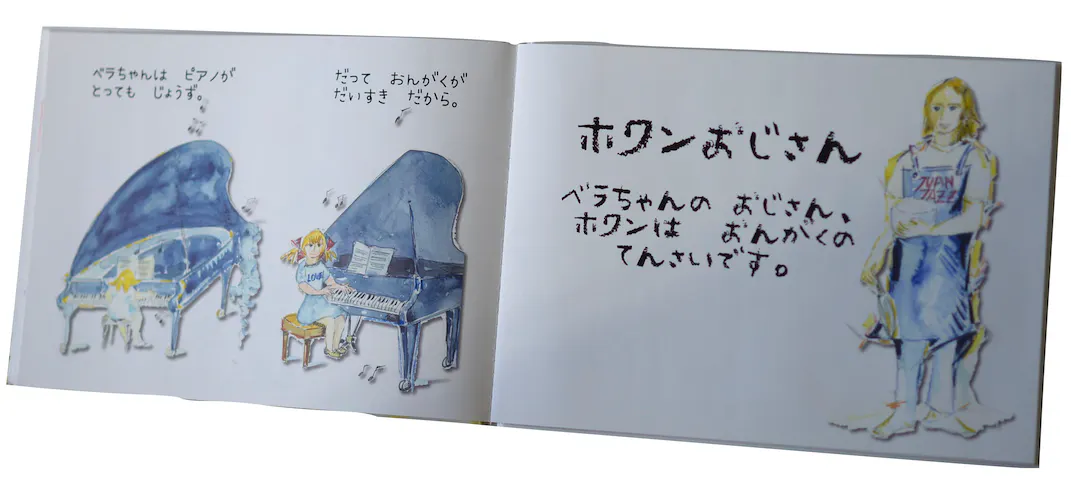 ベラちゃんは ピアノが
とっても じょうず。
だって おんがくが
だいすき だから。
ホワンおじさん
ベラちゃんの おじさん、
ホワンは おんがくの
てんさいです。
JUAN
JAZZ